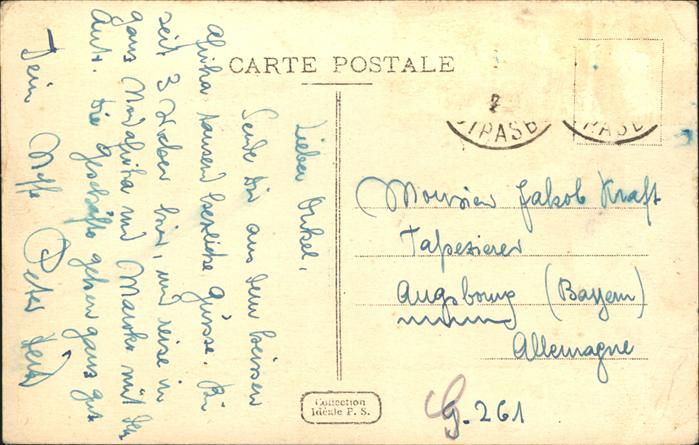 CARTE POSTALE
Lieber Onkel,
Sende Dir aus dem heissen
Afrika tausend herzliche Grüsse. Bin
seit 3 Wochen hier, und reise in
ganz Nordafrika und Maroko mit dem
Auto. Die Geschäfte gehen ganz gut
Dein Neffe Peter
STRASB
RASB
Monsieur Jakob Kraft
Tapezierer
Augsbourg (Bayern)
Allemagne
G. 261
Collection
Idéale P. S.